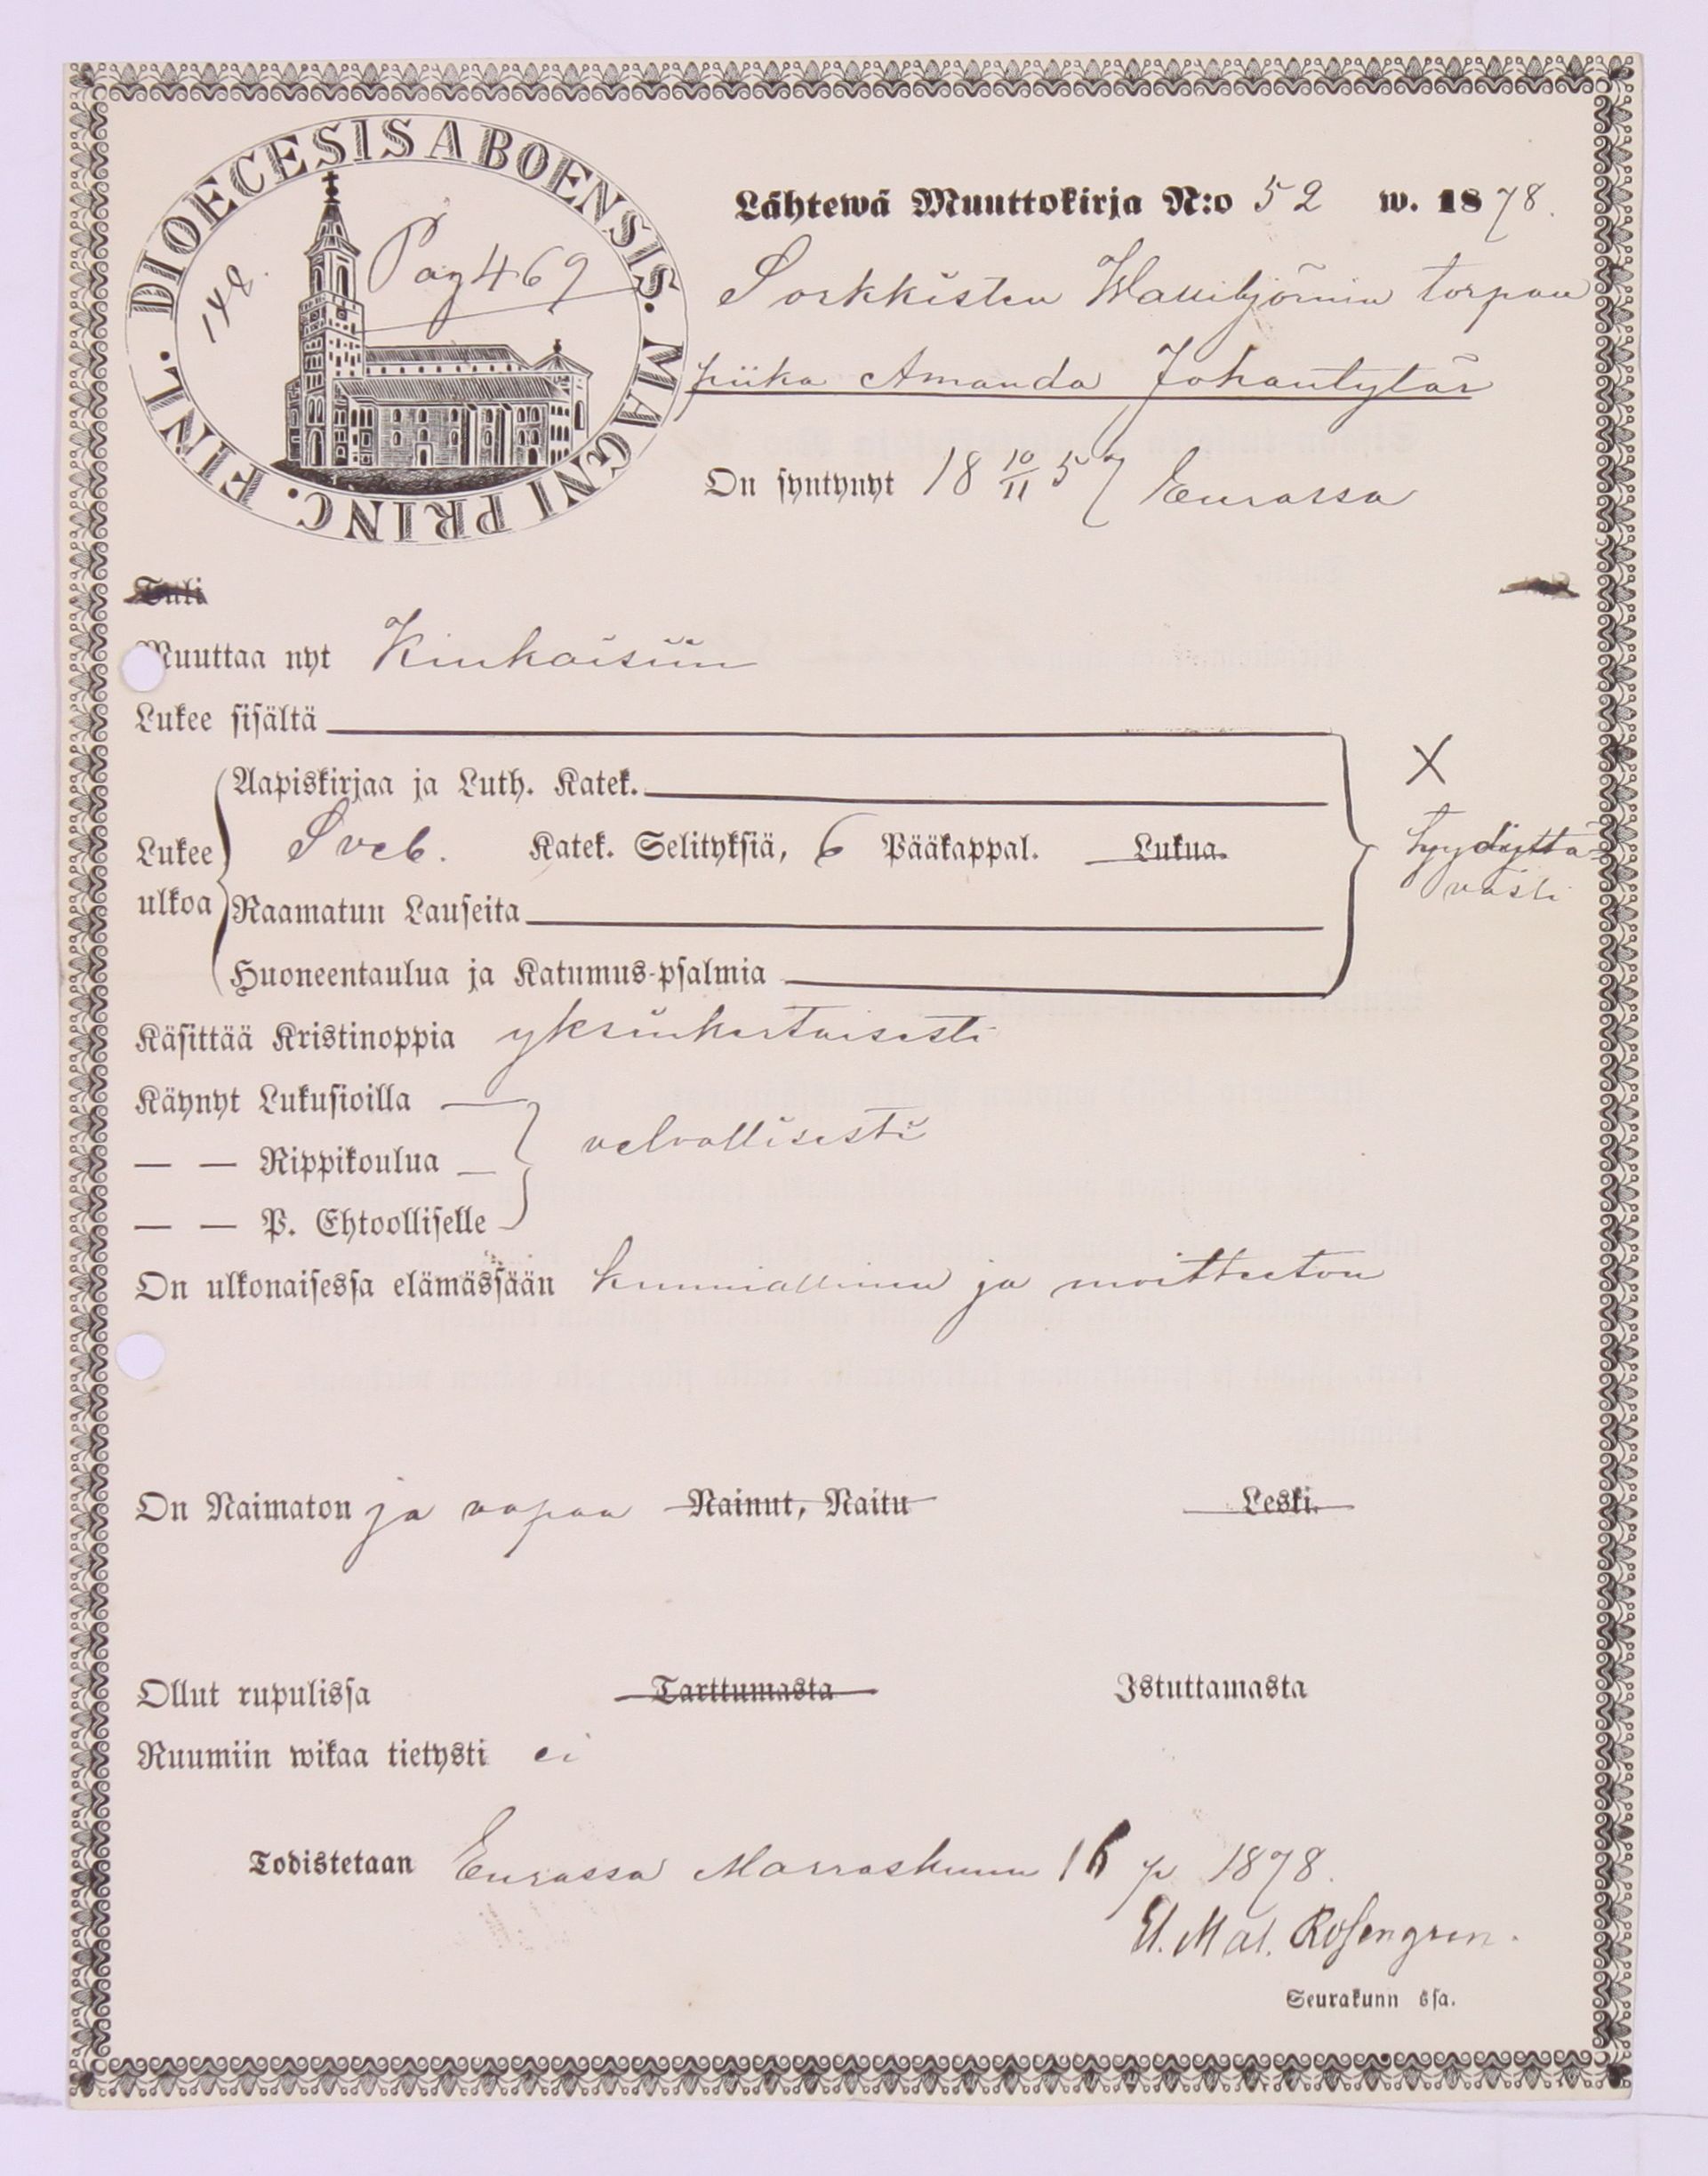 DIOECESIS ABOENSIS. MAGNI PRINC. FINL.
148.
Pag 469
Lähtewä Muuttokirja N:o 52 w. 1878.
Sorkkisten torpan
piika Amanda Johantytär
On syntynyt 18 10/11 57 Eurassa
Tuli
Muuttaa nyt Kiukaisiin
Lukee sisältä
Aapiskirjaa ja Luth. Katek.
Lukee ulkoa
Sveb. Katek. Selityksiä, 6 Pääkappal. Lukua.
Raamatun Lauseita
Huoneentaulua ja Katumus-psalmia
X
tyydyttä-
västi
Käsittää Kristinoppia yksinkertaisesti
Käynyt Lukusioilla
— — Rippikoulua
velvollisesti
— — P. Ehtoolliselle
On ulkonaisessa elämässään kunniallinen ja moitteeton
On Naimaton ja vapaa Nainut, Naitu Leski.
Ollut rupulissa Tarttumasta Istuttamasta
Ruumiin wikaa tietysti ei
Todistetaan Eurassa Marraskuun 16 p 1878.
Rosengren.
Seurakunn ssa.